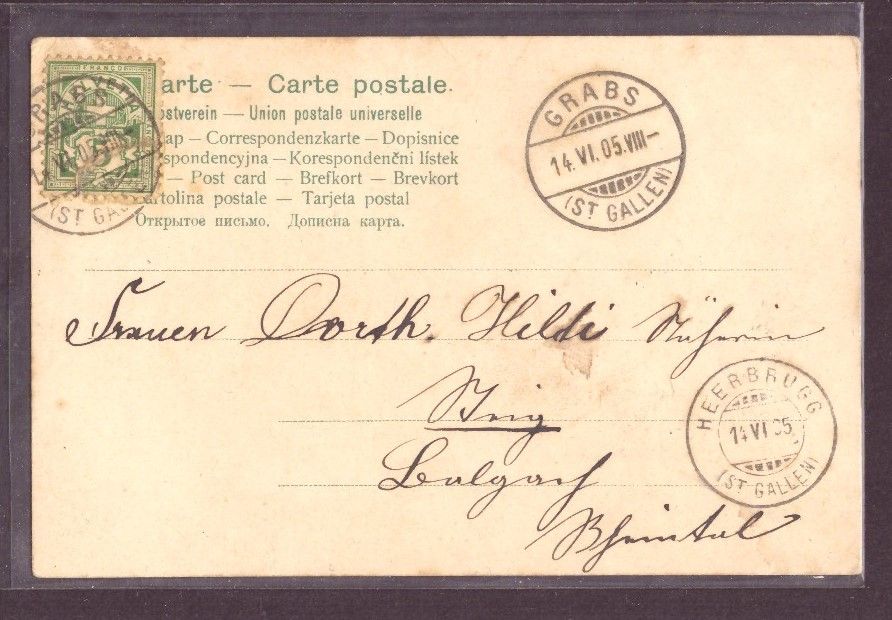 FRANCO
HELVETIA
arte — Carte postale.
ostverein — Union postale universelle
ap — Correspondenzkarte — Dopisnice
espondencyjna — Korespondenčni listek
— Post card — Brefkort — Brevkort
artolina postale — Tarjeta postal
Открытое письмо. Дописна карта.
GRABS
14.VI.05.VIII–
(ST GALLEN)
GRABS
(ST GAL
Frauen Dorth. Hilti Näherin
Steig
Balgach
Rheintal
HEERBRUGG
14 VI 05
(ST GALLEN)